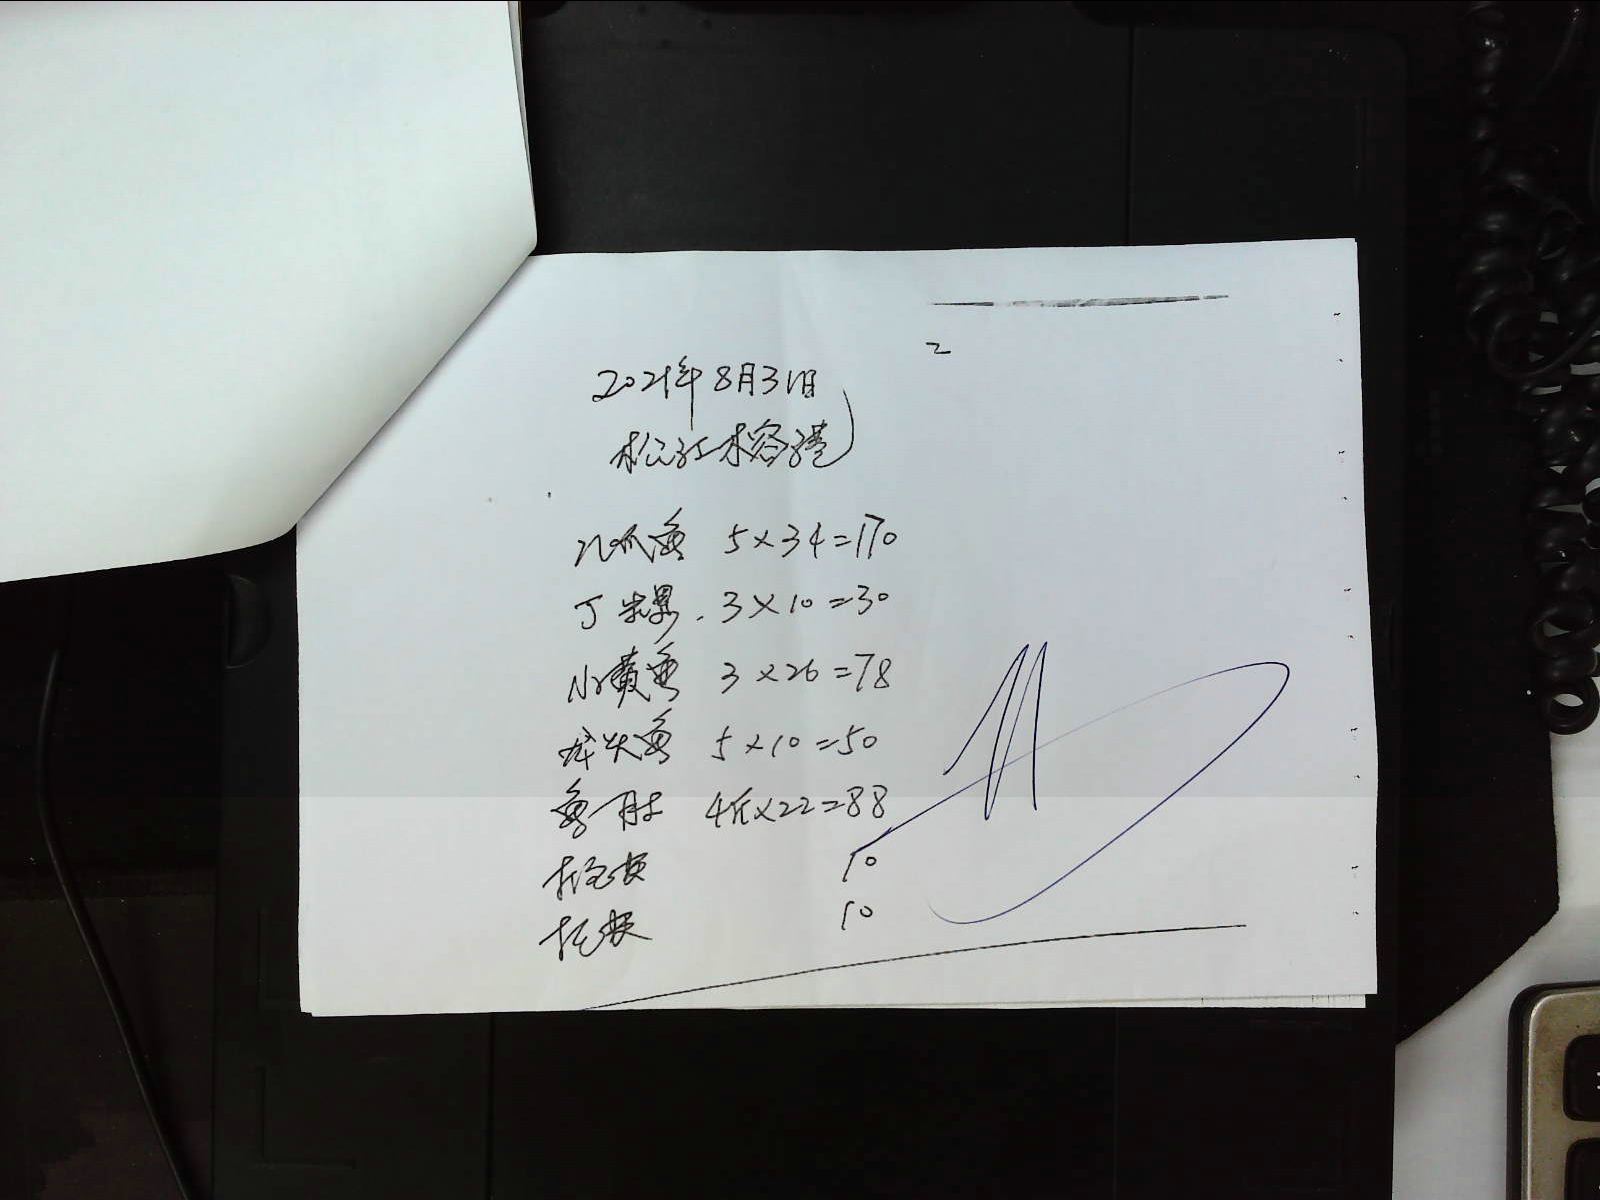 2
2021年8月31日
松江木容港
八爪鱼 5×34=170
丁 3×10=30
小黄鱼 3×26=78
龙头鱼 5×10=50
鱼肚 4斤×22=88
10
10